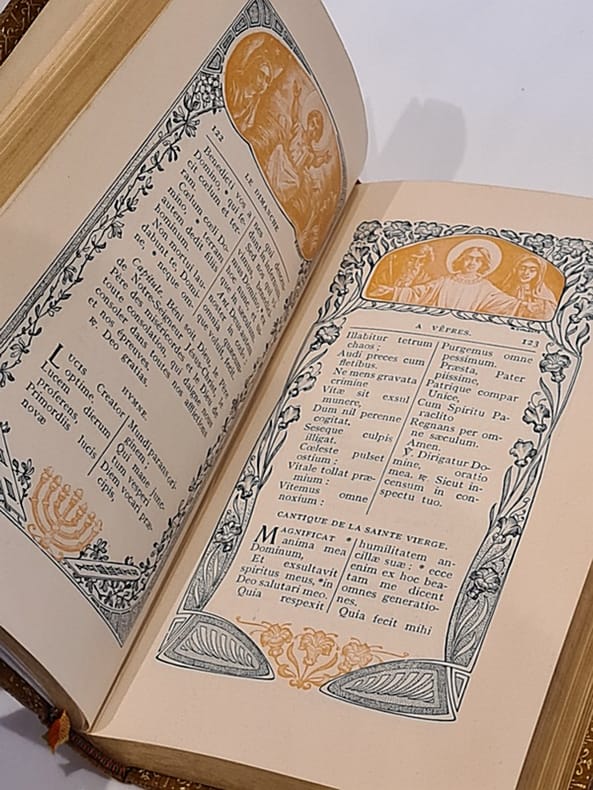 122 LE DIMANCHE
Benedicti vos a
Domino, * qui fe-
cit cœlum et
Cœlum * cœli Do-
mino, * terram
autem dedit filiis
hominum.
Non mortui
dabunt te, Domi-
ne, * neque omnes
Sed nos qui
que voluit fecit.
Capitule. Béni soit Dieu, le Père
de Notre-Seigneur Jésus-Christ, le
Père des miséricordes et le Dieu de
toute consolation, qui daigne nous
consoler dans toutes nos afflictions
et nos épreuves.
℟. Deo gratias.
HYMNE.
LUCIS Creator
optime,
Lucem dierum
proferens,
Primordiis lucis
novæ
Mundi parans ori-
ginem;
Qui mane junc-
tum vesperi
Diem vocari præ-
cipis,
A VÊPRES. 123
Illabitur tetrum
chaos;
Audi preces cum
fletibus.
Ne mens gravata
crimine
Vitæ sit exsul
munere,
Dum nil perenne
cogitat,
Seseque culpis
illigat.
Cœleste pulset
ostium;
Vitale tollat præ-
mium:
Vitemus omne
noxium:
Purgemus omne
pessimum.
Præsta, Pater
piissime,
Patrique compar
Unice,
Cum Spiritu Pa-
raclito
Regnans per om-
ne sæculum.
Amen.
℣. Dirigatur Do-
mine, oratio
mea, ℟. Sicut in-
censum in con-
spectu tuo.
CANTIQUE DE LA SAINTE VIERGE.
MAGNIFICAT *
anima mea
Dominum,
Et exsultavit
spiritus meus, * in
Deo salutari meo,
Quia respexit
humilitatem an-
cillæ suæ: * ecce
enim ex hoc bea-
tam me dicent
omnes generatio-
nes,
Quia fecit mihi